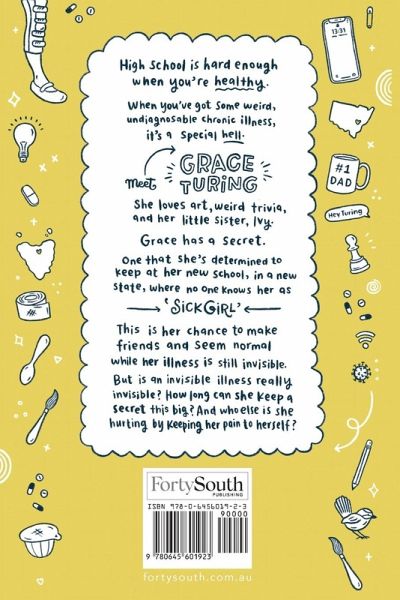 High School is hard enough
when you're healthy.
When you've got some weird,
undiagnosable chronic illness,
it's a special hell.
Meet GRACE
TURING
She loves art, weird trivia,
and her little sister, Ivy.
Grace has a secret.
One that she's determined to
keep at her new school, in a new
state, where no one knows her as
'SICK GIRL'
This is her chance to make
friends and seem normal
while her illness is still invisible.
But is an invisible illness really
invisible? How long can she keep a
secret this big? And who else is she
hurting by keeping her pain to herself?
13:31
#1
DAD
Hey Turing
FortySouth
PUBLISHING
ISBN 978-0-6456019-2-3
90000
9 780645 601923
fortysouth.com.au